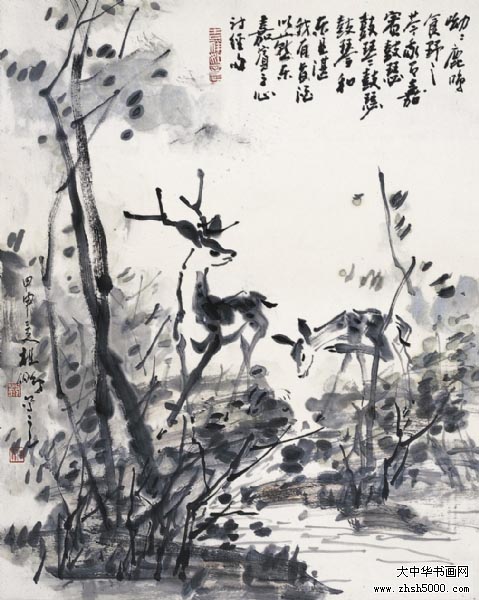 呦呦鹿鸣
食野之
芩我有嘉
宾鼓瑟
鼓琴鼓瑟
鼓琴和
乐且湛
我有旨酒
以燕乐
嘉宾之心
诗经句
甲申
大中华书画网
www.zhsh5000.com